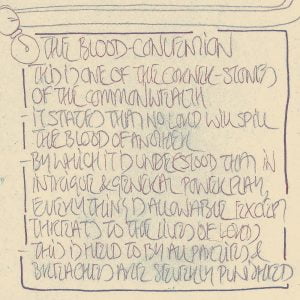 THE BLOOD-CONVENTION
THIS IS ONE OF THE CORNER-STONES
OF THE COMMONWEALTH
- IT STATES THAT NO LORD WILL SPILL
THE BLOOD OF ANOTHER
- BY WHICH IT IS UNDERSTOOD THAT IN
INTRIGUE & GENERAL POWER PLAY,
EVERYTHING IS ALLOWABLE EXCEPT
THREATS TO THE LIVES OF LORDS
- THIS IS HELD TO BY ALL PARTIES, &
BREACHES ARE SEVERELY PUNISHED